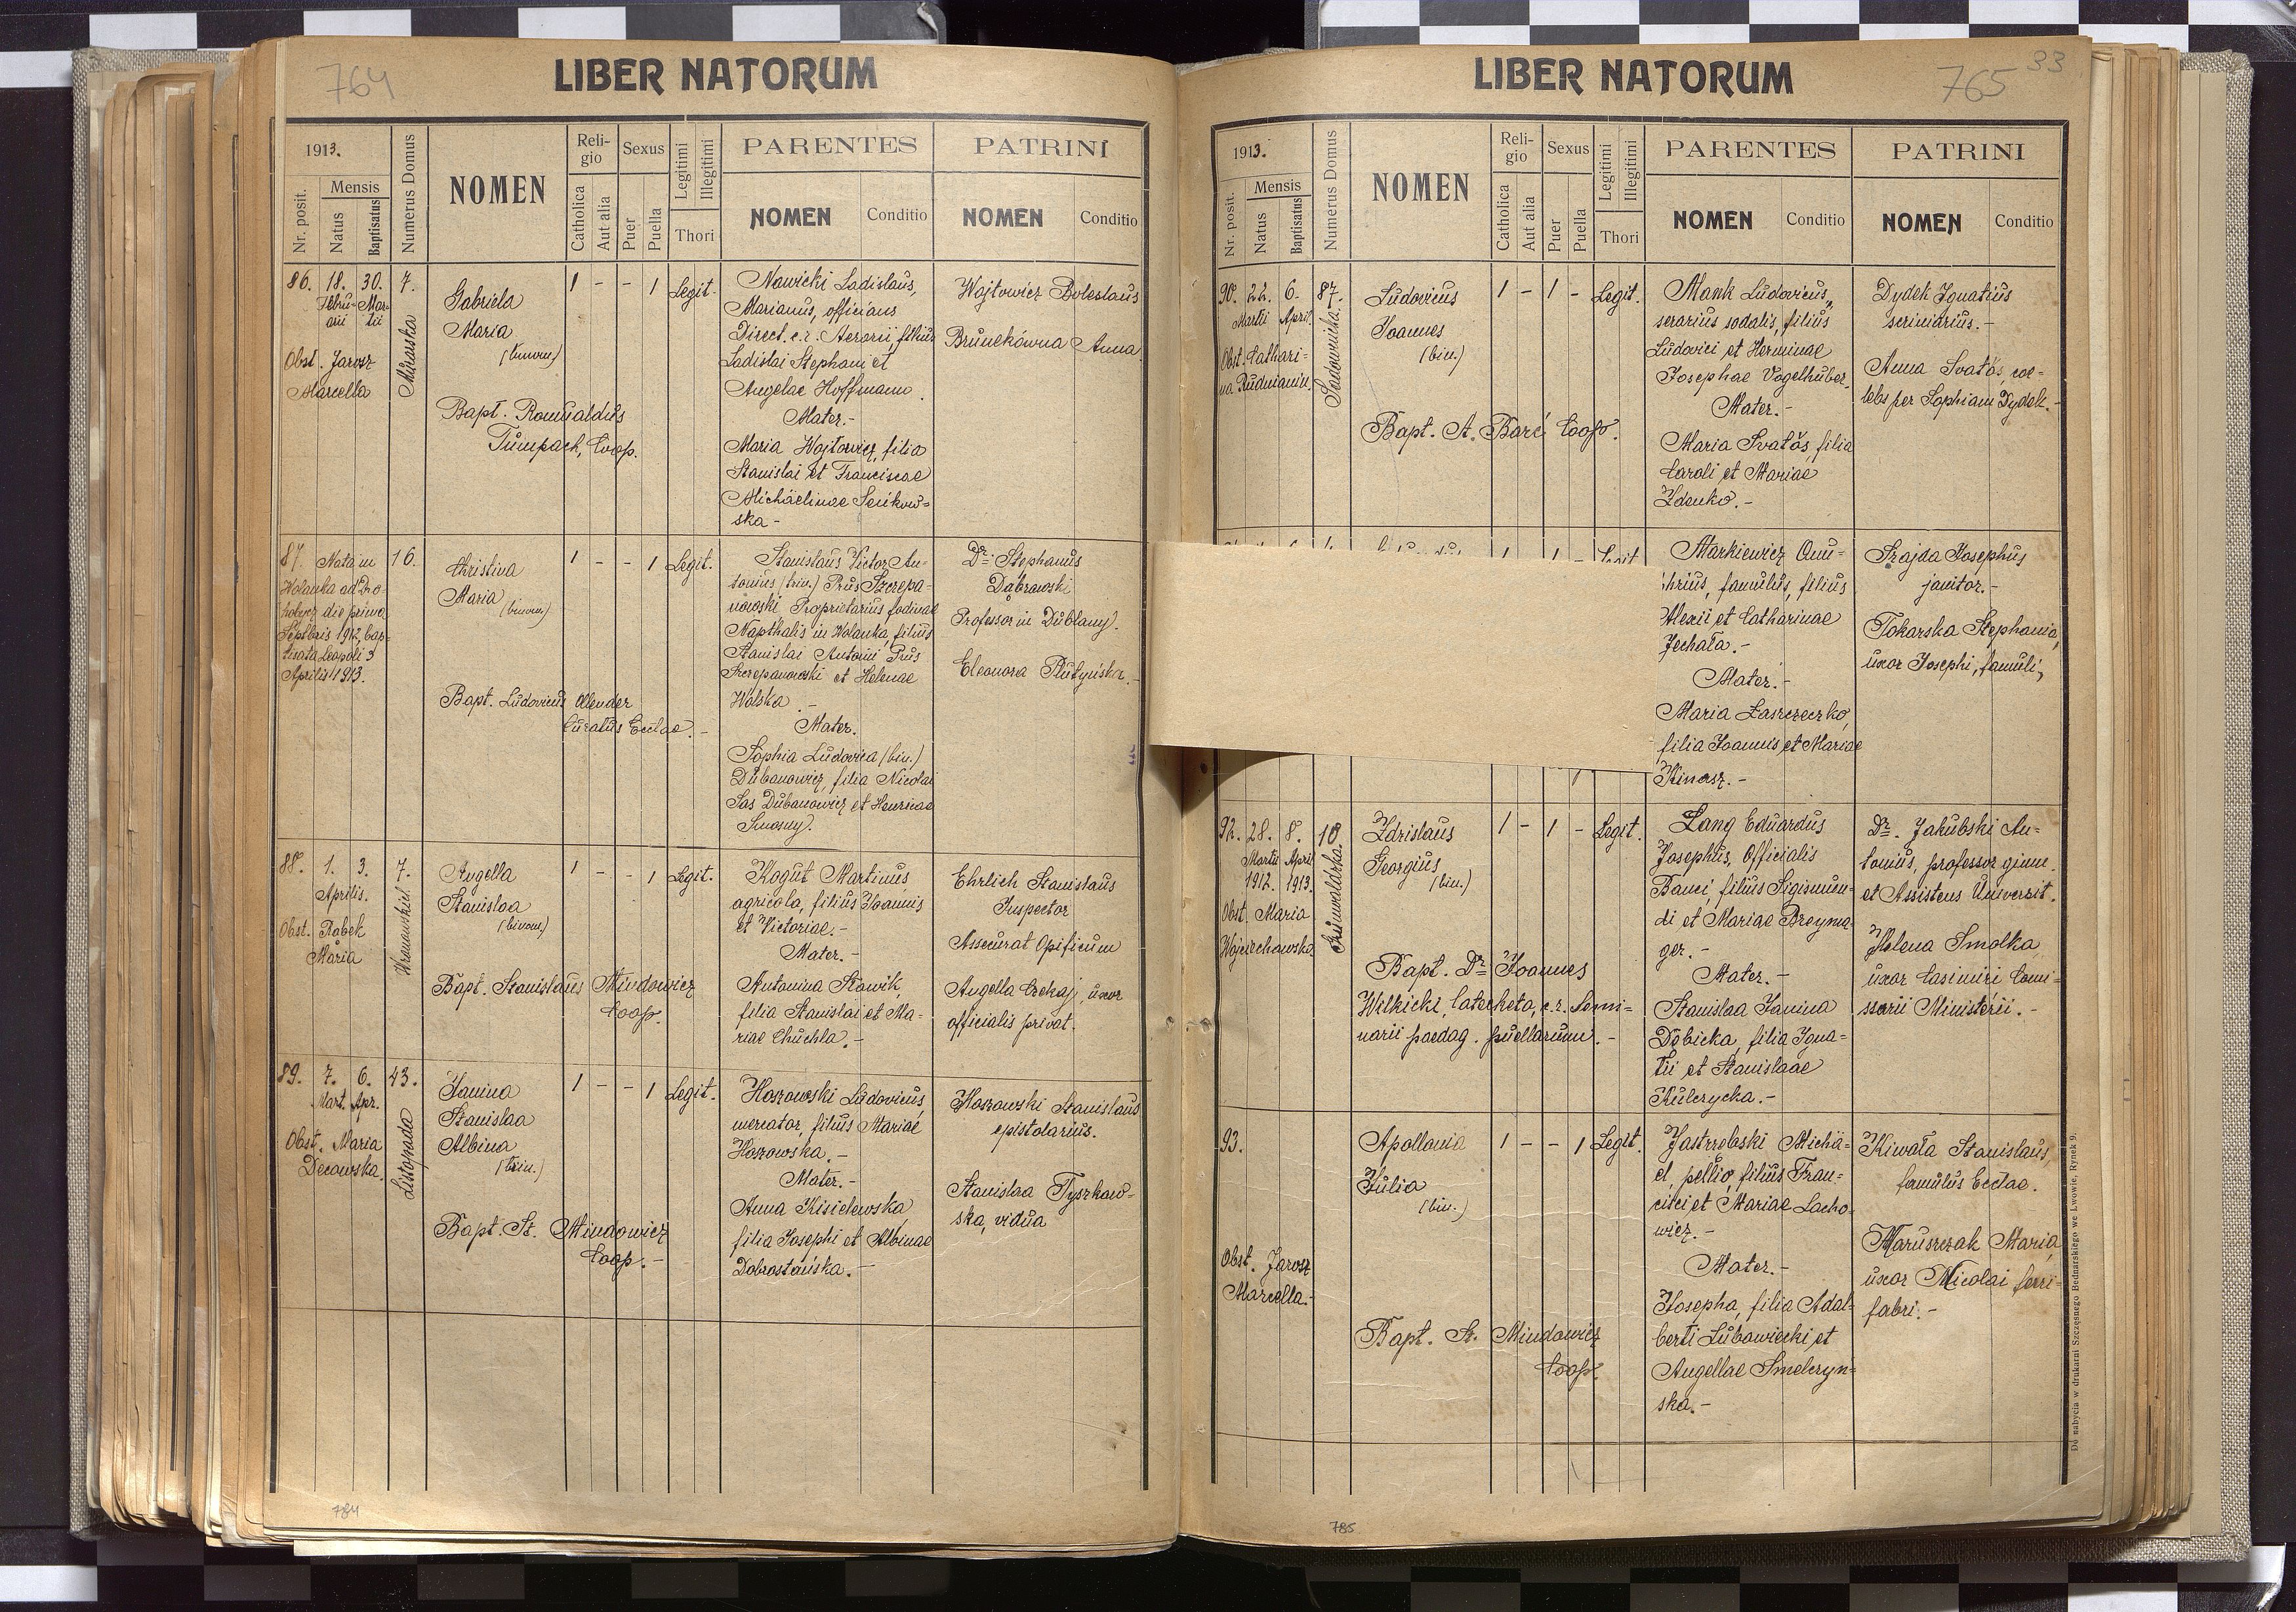 764
LIBER NATORUM
1913.
Nr. posit.
Mensis
Natus
Baptisatus
Numerus Domus
NOMEN
Religio
Catholica
Aut alia
Sexus
Puer
Puella
Legitimi
Illegitimi
Thori
PARENTES
NOMEN
Conditio
PATRINI
NOMEN
Conditio
86. 18. 30. 7.
Februarii
Martii
Murarska
Obst. Jarosz
Marcella
Gabriela
Maria
(binom.)
Bapt. Romualdus
Tumpach, Coop.
1 - - 1 Legit.
Nowicki Ladislaus,
Marianus, officians
Direct. c. r. Aerarii, filius
Ladislai Stephani et
Angelae Hoffmann.
Mater.-
Maria Wojtowicz, filia
Stanislai et Franciscae
Michaelinae Senkow=
ska -
Wojtowicz Boleslaus
Brunekówna Anna.
87. Nata in 16.
Wolanka ad Dro-
hobycz die prima
Septbris 1912, bap-
tisata Leopoli 3
Aprilis 1913.
Christina
Maria
(binom.)
Bapt. Ludovicus Ollender
Curatus Ecclae.-
1 - - 1 Legit.
Stanislaus Victor An-
tonius (trin.) Prus Szczepa-
nowski Proprietarius fodinae
Napthalis in Wolanka, filius
Stanislai Antonii Prus
Szczepanowski et Helenae
Wolska.-
Mater.
Sophia Ludovica (bin.)
Dubanowicz, filia Nicolai
Sas Dubanowicz et Henricae
Smosny.
Dr. Stephanus
Dąbrowski
Professor in Dublany.
Eleonora Plutyńska.-
88. 1. 3. 7.
Aprilis.
Obst. Babek
Maria
Angella
Stanislaa
(binom.)
Bapt. Stanislaus Mindowicz
Coop.
1 - - 1 Legit.
Kogut Martinus
agricola, filius Ioannis
et Victoriae.-
Mater.-
Antonina Sławik,
filia Stanislai et Ma-
riae Chuchla.-
Ehrlich Stanislaus
Inspector
Assecurat Opificum
Angella Czekaj, uxor
officialis privat.
89. 7. 6. 43.
Mart. Apr.
Listopada
Obst. Maria
Decowska.
Janina
Stanislaa
Albina
(trin.)
Bapt. St. Mindowicz
Coop.-
1 - - 1 Legit.
Hoszowski Ludovicus
mercator, filius Mariae
Hoszowska.-
Mater.-
Anna Kisielewska,
filia Josephi et Albinae
Dobrostańska.-
Hoszowski Stanislaus
epistolarius.
Stanislaa Tyszkow-
ska, vidua
784
765
33
LIBER NATORUM
1913.
Nr. posit.
Mensis
Natus
Baptisatus
Numerus Domus
NOMEN
Religio
Catholica
Aut alia
Sexus
Puer
Puella
Legitimi
Illegitimi
Thori
PARENTES
NOMEN
Conditio
PATRINI
NOMEN
Conditio
90. 22. 6. 87.
Martii April.
Sadownicka.
Obst. Cathari=
na Rudnianin.
Ludovicus
Joannes
(bin.)
Bapt. A. Barć Coop.
1 - 1 - Legit.
Mank Ludovicus,
serarius sodalis, filius
Ludovici et Herminae
Josephae Vogelhuber.
Mater.-
Maria Svatŏs, filia
Caroli et Mariae
Zdenko.-
Dydek Ignatius
scriniarius.-
Anna Svatŏs, coe-
lebs per Sophiam Dydek.-
Legit.
Markiewicz Onu=
phrius, famulus, filius
Alexii et Catharinae
Jechała.-
Mater.-
Maria Łaszczeczko,
filia Joannis et Mariae
Kinasz.-
Szajda Josephus
janitor.-
Tokarska Stephania,
uxor Josephi, famuli,
92. 28. 8. 10.
Martii April
1912. 1913.
Grunwaldzka
Obst. Maria
Wojciechowska.
Zdzislaus
Georgius
(bin.)
Bapt. Dr. Joannes
Wilkicki, catecheta, c. r. Semi=
narii paedag. puellarum.-
1 - 1 - Legit.
Lang Eduardus
Josephus, Officialis
Banci, filius Sigismun=
di et Mariae Breyma-
ger.-
Mater.-
Stanislaa Janina
Dębicka, filia Igna=
tii et Stanislaae
Kulczycka.-
Dr. Jakubski An=
tonius, professor gimn.
et Assistens Universit.
Helena Smolka,
uxor Casimiri Comi=
ssarii Ministerii.-
93.
Obst. Jarosz
Marcella.-
Apollonia
Julia
(bin.)
Bapt. St. Mindowicz
Coop.
1 - - 1 Legit.
Jastrzebski Michä=
el, pellio, filius Fran=
cisci et Mariae Lacho-
wicz.-
Mater.-
Josepha, filia Adal=
berti Lubowiecki et
Angellae Smelczyn=
ska.-
Kiwała Stanislaus,
famulus Ecclae.
Maruszczak Maria,
uxor Nicolai ferri=
fabri.-
Do nabycia w drukarni Szczęsnego Bednarskiego we Lwowie, Rynek 9.
785